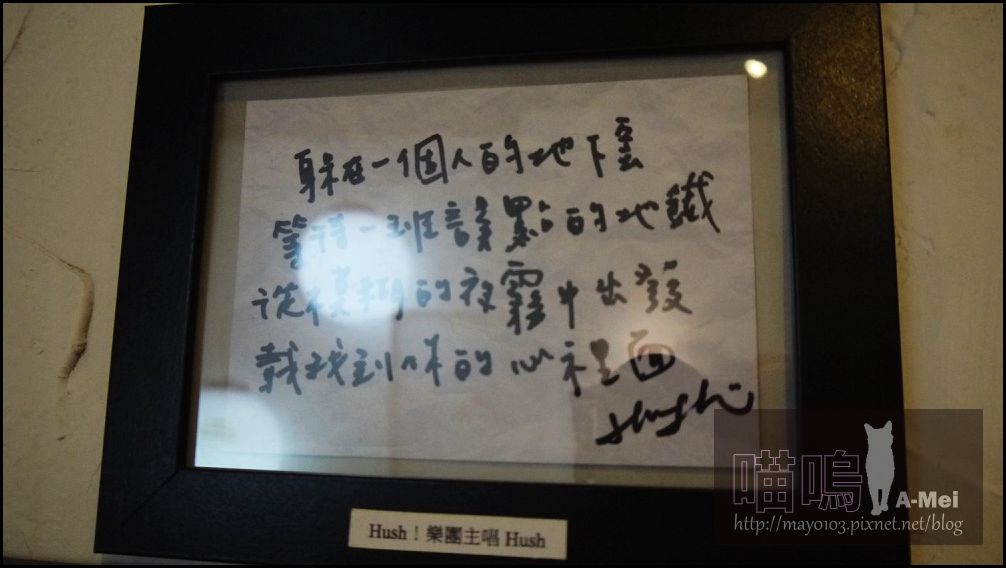 躲在一個人的地下雲
等待一班誤點的地鐵
從模糊的夜霧中出發
載我到你的心裡面
Hush
Hush！樂團主唱 Hush
喵嗚
A-Mei
http://mayo103.pixnet.net/blog